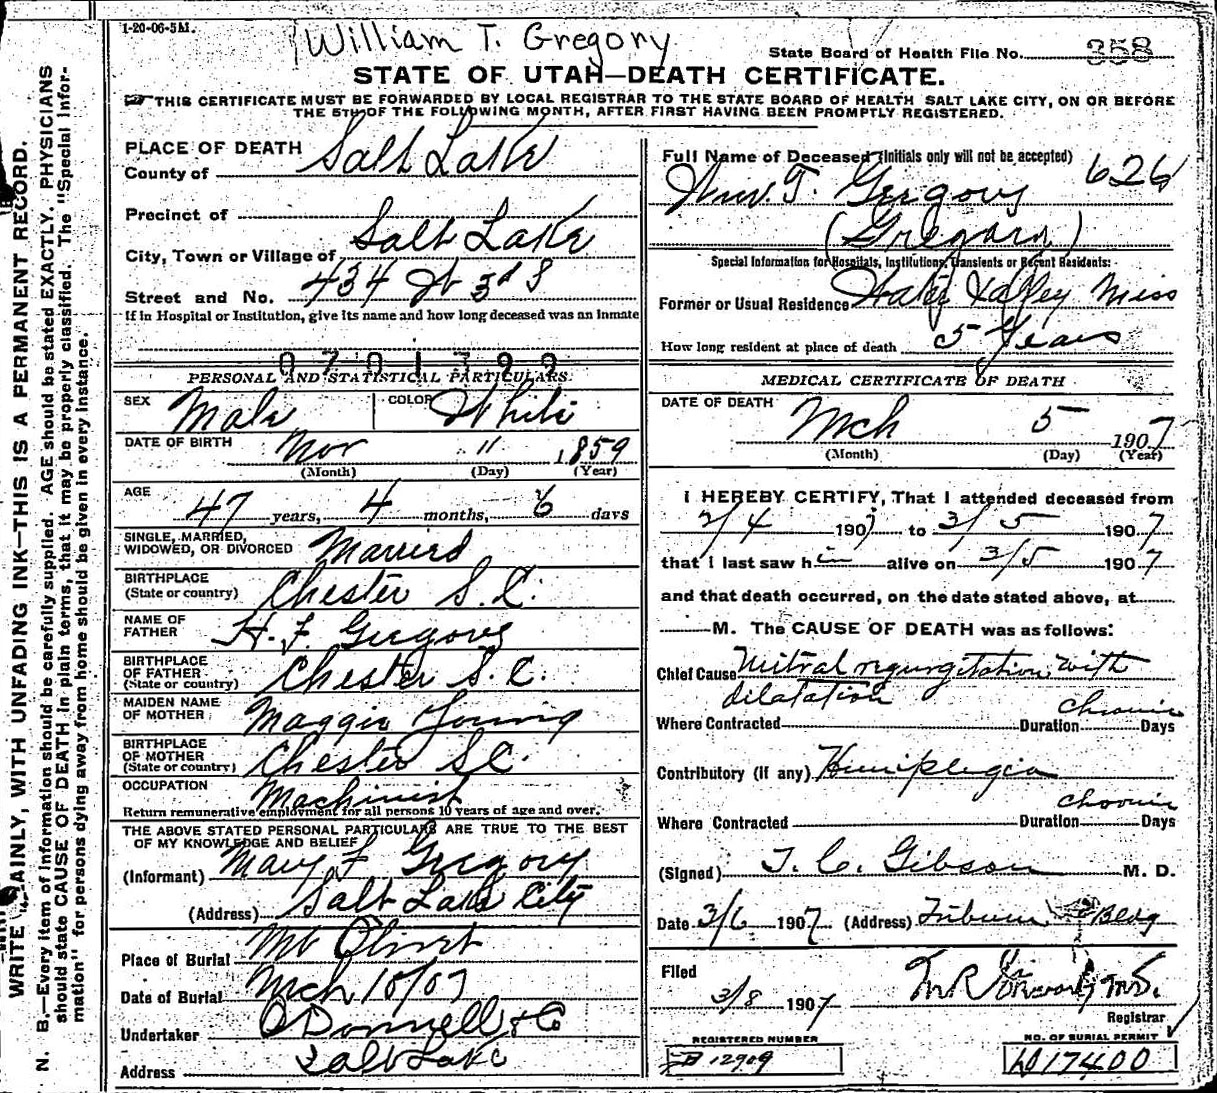 1-20-06-5M.
William T. Gregory
State Board of Health File No. 358
STATE OF UTAH—DEATH CERTIFICATE.
THIS CERTIFICATE MUST BE FORWARDED BY LOCAL REGISTRAR TO THE STATE BOARD OF HEALTH SALT LAKE CITY, ON OR BEFORE
THE 5TH OF THE FOLLOWING MONTH, AFTER FIRST HAVING BEEN PROMPTLY REGISTERED.
PLACE OF DEATH
County of Salt Lake
Precinct of
City, Town or Village of Salt Lake
Street and No. 434 W 3rd S
If in Hospital or Institution, give its name and how long deceased was an inmate
PERSONAL AND STATISTICAL PARTICULARS.
SEX Male COLOR White
DATE OF BIRTH Nov 11 1859
(Month) (Day) (Year)
AGE
47 years, 4 months, 6 days
SINGLE, MARRIED,
WIDOWED, OR DIVORCED Married
BIRTHPLACE
(State or country) Chester S.C.
NAME OF
FATHER H. F. Gregory
BIRTHPLACE
OF FATHER
(State or country) Chester S.C.
MAIDEN NAME
OF MOTHER Maggie Young
BIRTHPLACE
OF MOTHER
(State or country) Chester SC.
OCCUPATION Machinist
Return remunerative employment for all persons 10 years of age and over.
THE ABOVE STATED PERSONAL PARTICULARS ARE TRUE TO THE BEST
OF MY KNOWLEDGE AND BELIEF
(Informant) Mary F Gregory
(Address) Salt Lake City
Place of Burial Mt Olivet
Date of Burial Mch 10/07
Undertaker O'Donnell & Co
Address Salt Lake
Full Name of Deceased (Initials only will not be accepted) 626
Wm. T. Gregory
(Gregory)
Special Information for Hospitals, Institutions, Transients or Recent Residents:
Former or Usual Residence Water Valley Miss
How long resident at place of death 5 Years
MEDICAL CERTIFICATE OF DEATH
DATE OF DEATH Mch 5 1907
(Month) (Day) (Year)
I HEREBY CERTIFY, That I attended deceased from
2/4 1907 to 3/5 1907
that I last saw him alive on 3/5 1907
and that death occurred, on the date stated above, at
M. The CAUSE OF DEATH was as follows:
Chief Cause Mitral regurgitation with
dilatation
Where Contracted Duration chronic Days
Contributory (if any) Hemiplegia
Where Contracted Duration chronic Days
(Signed) T. C. Gibson M. D.
Date 3/6 1907 (Address) Tribune Bldg
Filed
3/8 1907
Registrar
REGISTERED NUMBER
D 12909
NO. OF BURIAL PERMIT
17400
WRITE PLAINLY, WITH UNFADING INK—THIS IS A PERMANENT RECORD.
N. B.—Every item of information should be carefully supplied. AGE should be stated EXACTLY. PHYSICIANS
should state CAUSE OF DEATH in plain terms, that it may be properly classified. The "Special Infor-
mation" for persons dying away from home should be given in every instance.